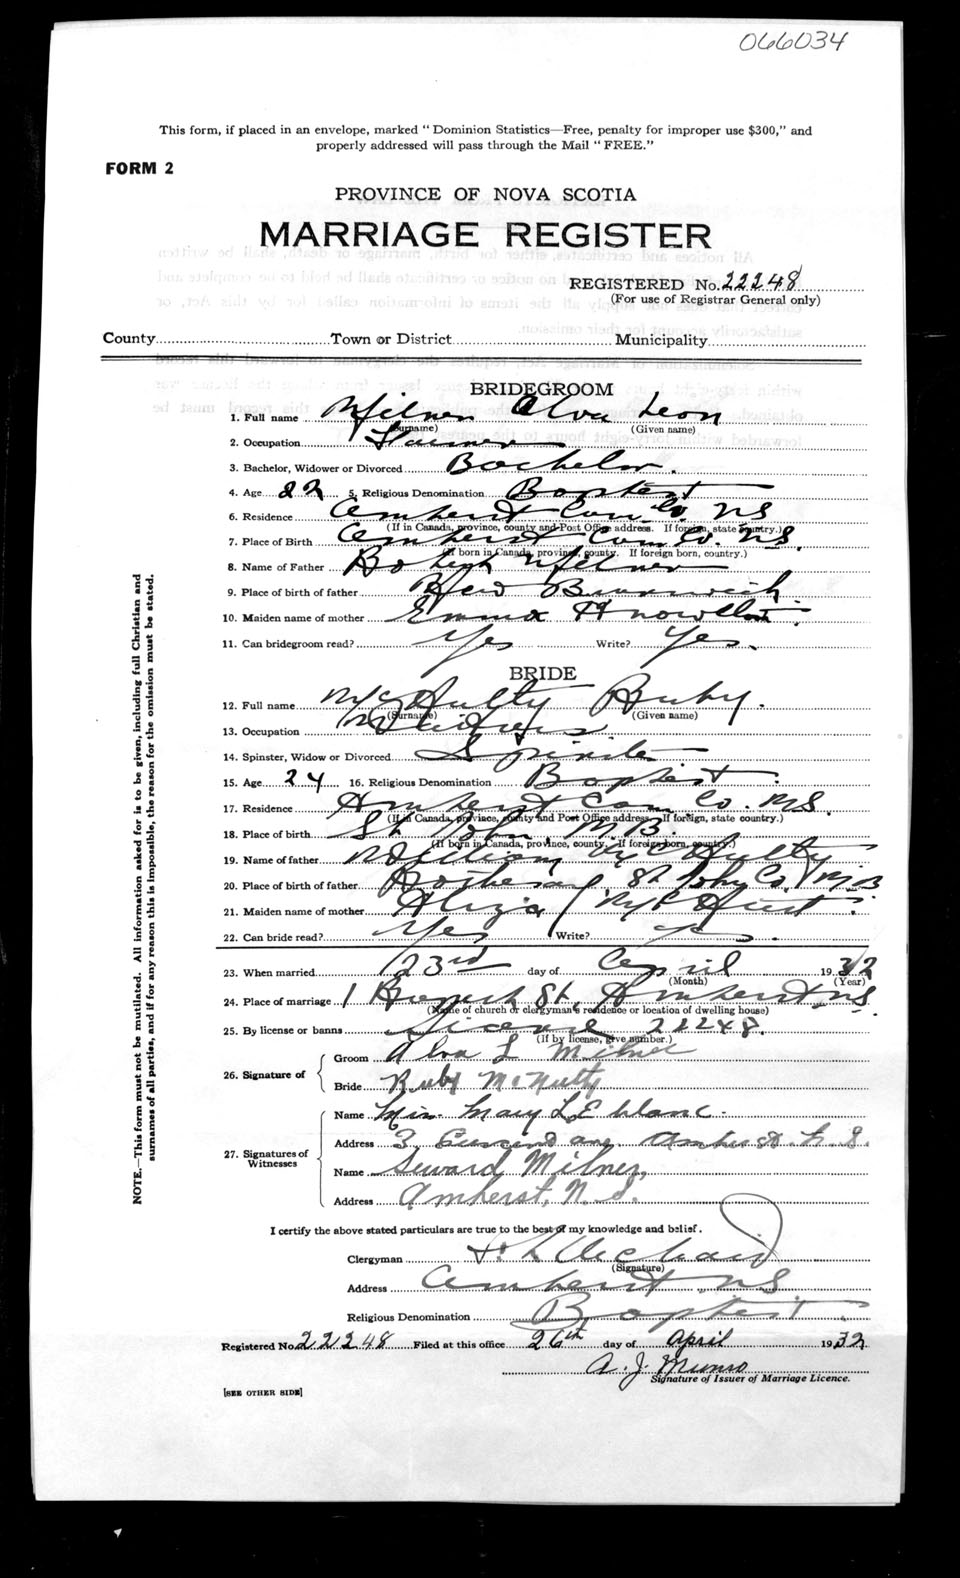 066034
This form, if placed in an envelope, marked "Dominion Statistics—Free, penalty for improper use $300," and
properly addressed will pass through the Mail "FREE."
FORM 2
PROVINCE OF NOVA SCOTIA
MARRIAGE REGISTER
REGISTERED No. 22248
(For use of Registrar General only)
County Town or District Municipality
BRIDEGROOM
1. Full name Milner Alva Leon
(Surname) (Given name)
2. Occupation
3. Bachelor, Widower or Divorced Bachelor.
4. Age 22 5. Religious Denomination Baptist
6. Residence Amherst Cum Co NS
(If in Canada, province, county and Post Office address. If foreign, state country.)
7. Place of Birth Amherst Cum Co. NS.
(If born in Canada, province, county. If foreign born, country.)
8. Name of Father Milner
9. Place of birth of father New Brunswick
10. Maiden name of mother Emma
11. Can bridegroom read? Yes Write? Yes.
BRIDE
12. Full name McNulty Ruby.
(Surname) (Given name)
13. Occupation
14. Spinster, Widow or Divorced Spinster
15. Age 24 16. Religious Denomination Baptist.
17. Residence Amherst Cum Co. NS.
(If in Canada, province, county and Post Office address. If foreign, state country.)
18. Place of birth St John, NB.
(If born in Canada, province, county. If foreign born, country.)
19. Name of father William McNulty
20. Place of birth of father Rothesay St John Co. NB
21. Maiden name of mother Eliza
22. Can bride read? Yes Write? Yes.
23. When married 23rd day of April 1932
(Month) (Year)
24. Place of marriage St, Amherst NS.
(Name of church or clergyman's residence or location of dwelling house)
25. By license or banns License 22248.
(If by license, give number.)
26. Signature of
Groom Alva L Milner
Bride Ruby McNulty
27. Signatures of Witnesses
Name Mrs. Mary LeBlanc.
Address Amherst N. S.
Name Seward Milner,
Address Amherst, N. S.
I certify the above stated particulars are true to the best of my knowledge and belief.
Clergyman
(Signature)
Address Amherst NS
Religious Denomination Baptist.
Registered No. 22248 Filed at this office 26th day of April 1932
A. J. Munro
Signature of Issuer of Marriage Licence.
[SEE OTHER SIDE]
NOTE.—This form must not be mutilated. All information asked for is to be given, including full Christian and
surnames of all parties, and if for any reason this is impossible, the reason for the omission must be stated.